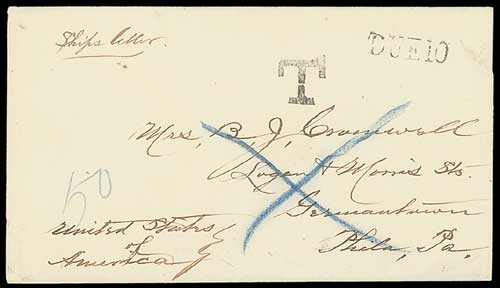 Ships Letter.
DUE 10
T
Mrs. B. J. Cromwell
Logan & Morris Sts.
Germantown
Phila, Pa.
50
United States
of
America